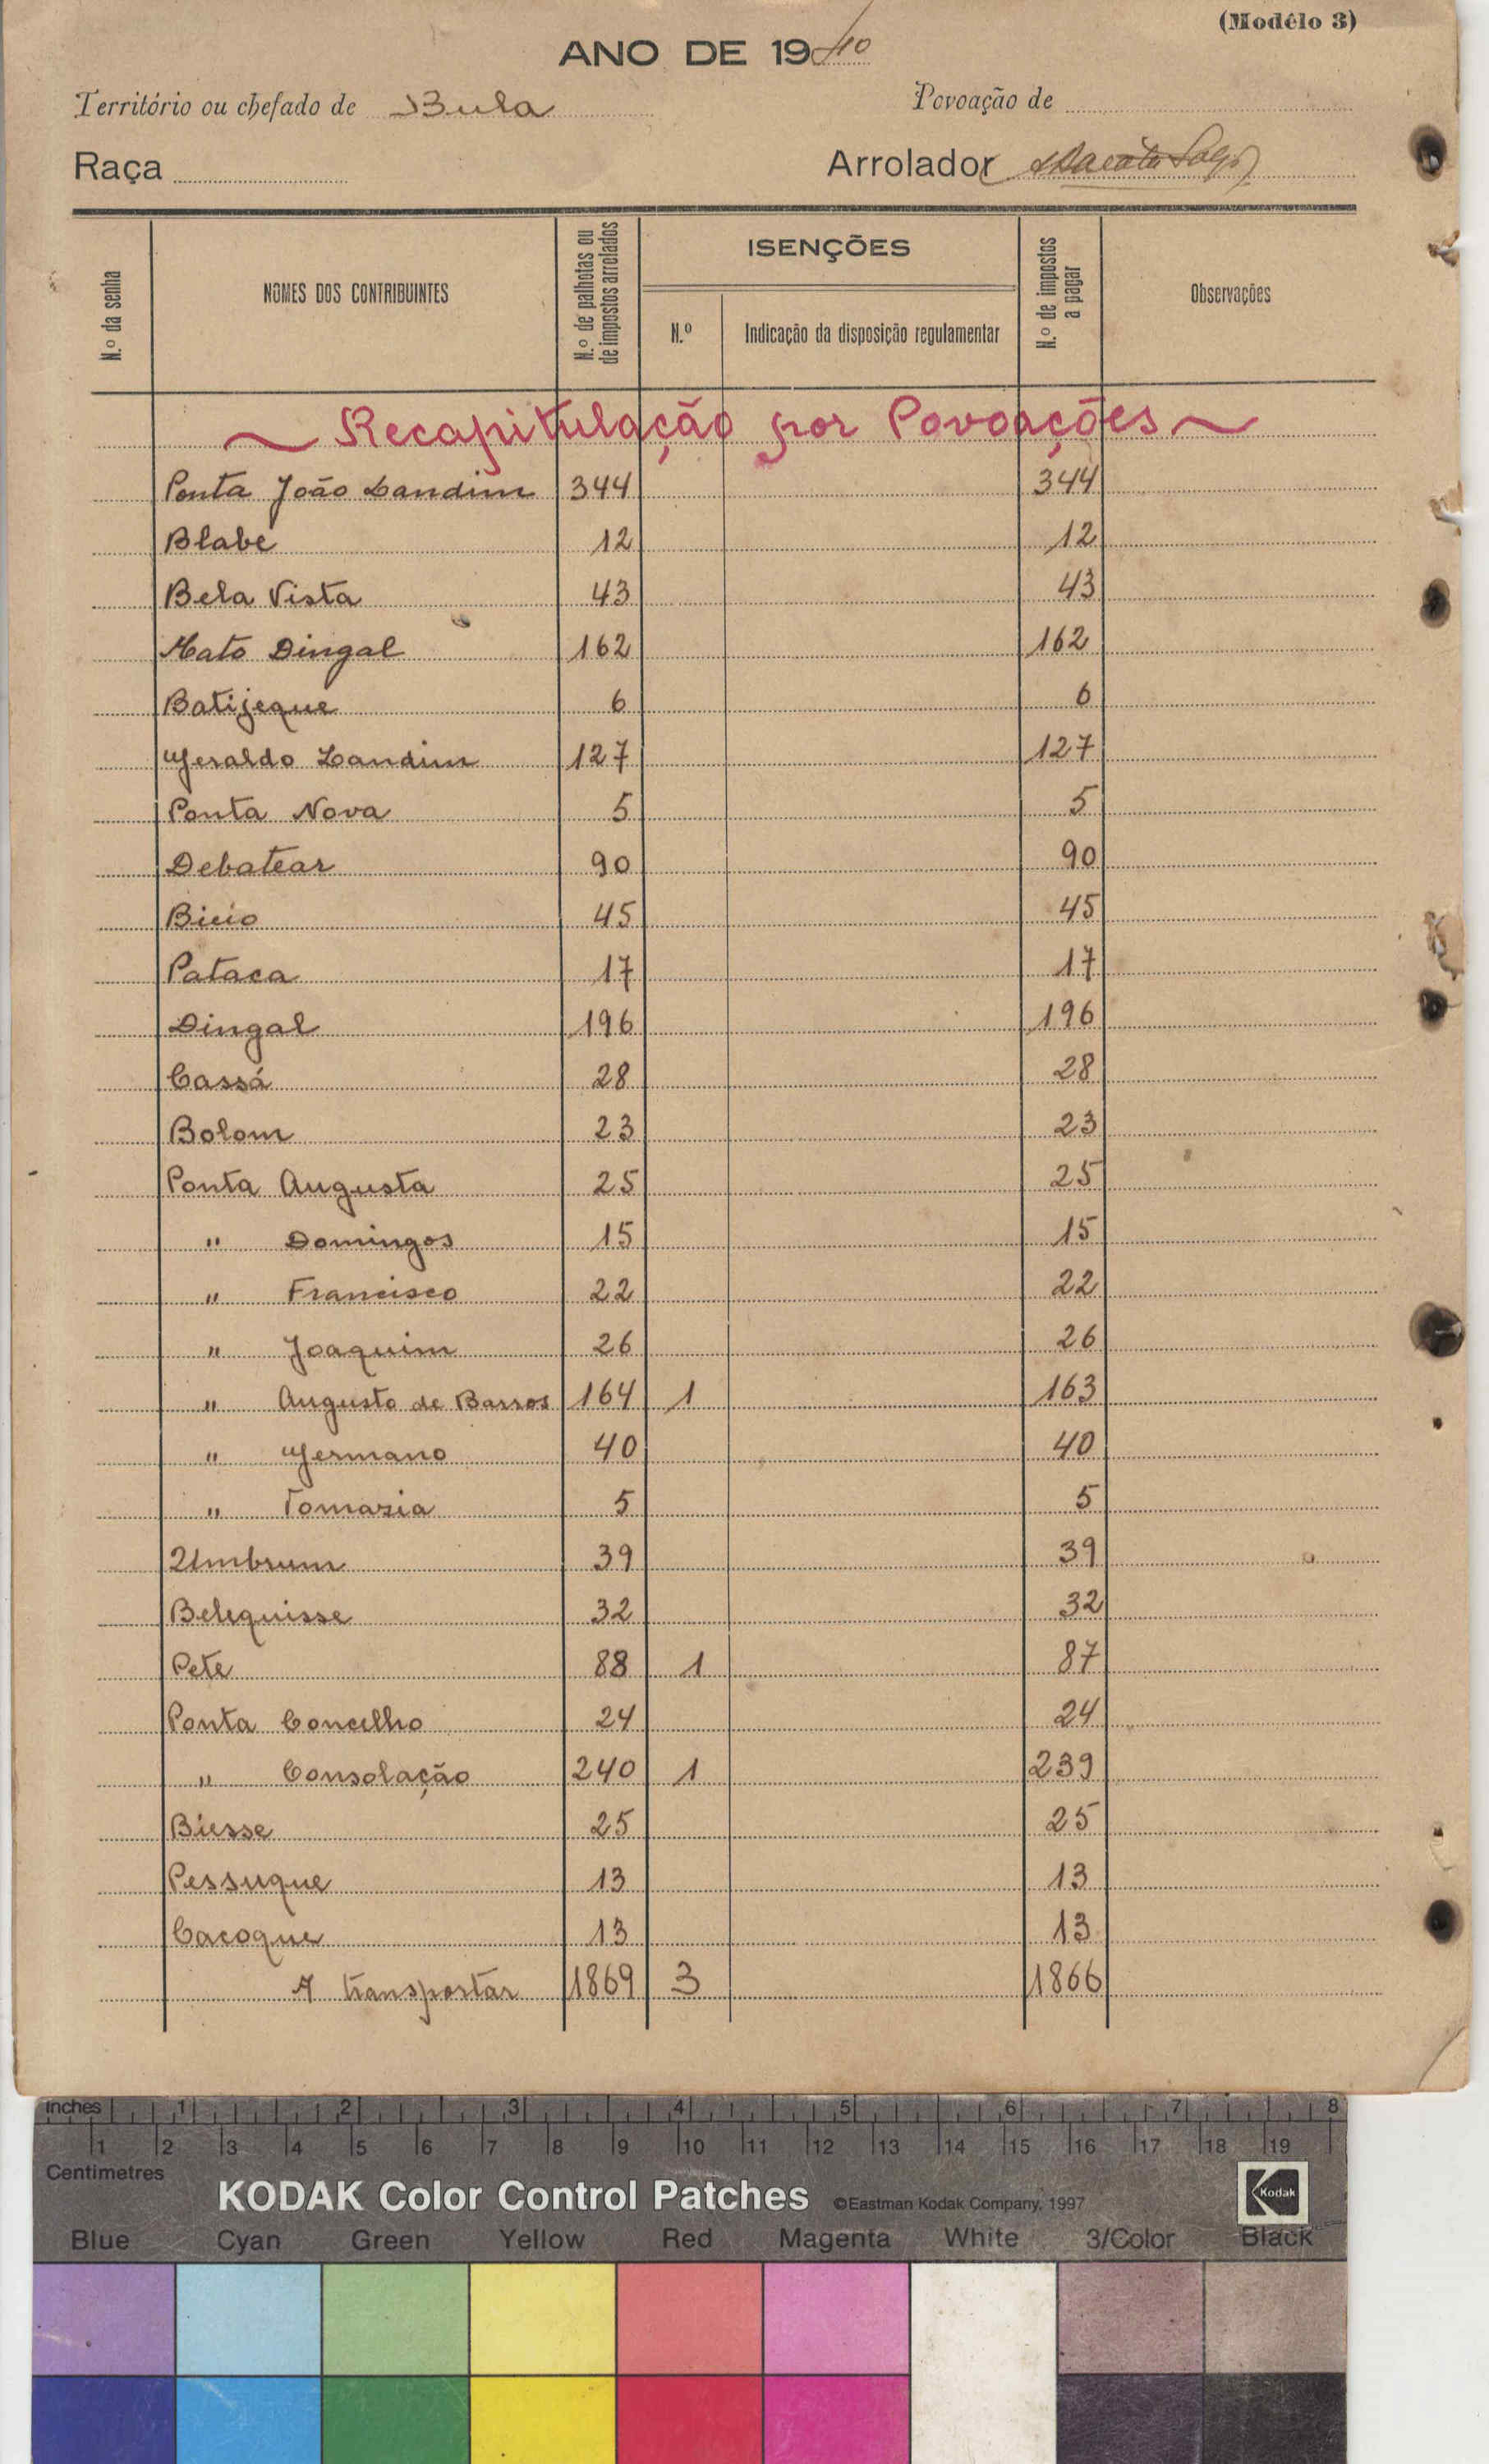 (Modêlo 3)
ANO DE 1940
Território ou chefado de Bula
Povoação de
Raça
Arrolador
N.º da senha
NOMES DOS CONTRIBUINTES
N.º de palhotas ou de impostos arrolados
ISENÇÕES
N.º
Indicação da disposição regulamentar
N.º de impostos a pagar
Observações
~ Recapitulação por Povoações ~
Ponta João Landim 344 344
Blabe 12 12
Bela Vista 43 43
Mato Dingal 162 162
Batijeque 6 6
Geraldo Landim 127 127
Ponta Nova 5 5
Debatear 90 90
Bicio 45 45
Pataca 17 17
Dingal 196 196
Cassá 28 28
Bolom 23 23
Ponta Augusta 25 25
" Domingos 15 15
" Francisco 22 22
" Joaquim 26 26
" Augusto de Barros 164 1 163
" Germano 40 40
" Tomasia 5 5
Umbrum 39 39
Belequisse 32 32
Pete 88 1 87
Ponta Concelho 24 24
" Consolação 240 1 239
Biesse 25 25
Pessuque 13 13
Cacoque 13 13
A transportar 1869 3 1866
inches 1 2 3 4 5 6 7 8
1 2 3 4 5 6 7 8 9 10 11 12 13 14 15 16 17 18 19
Centimetres
KODAK Color Control Patches ©Eastman Kodak Company, 1997 Kodak
Blue Cyan Green Yellow Red Magenta White 3/Color Black